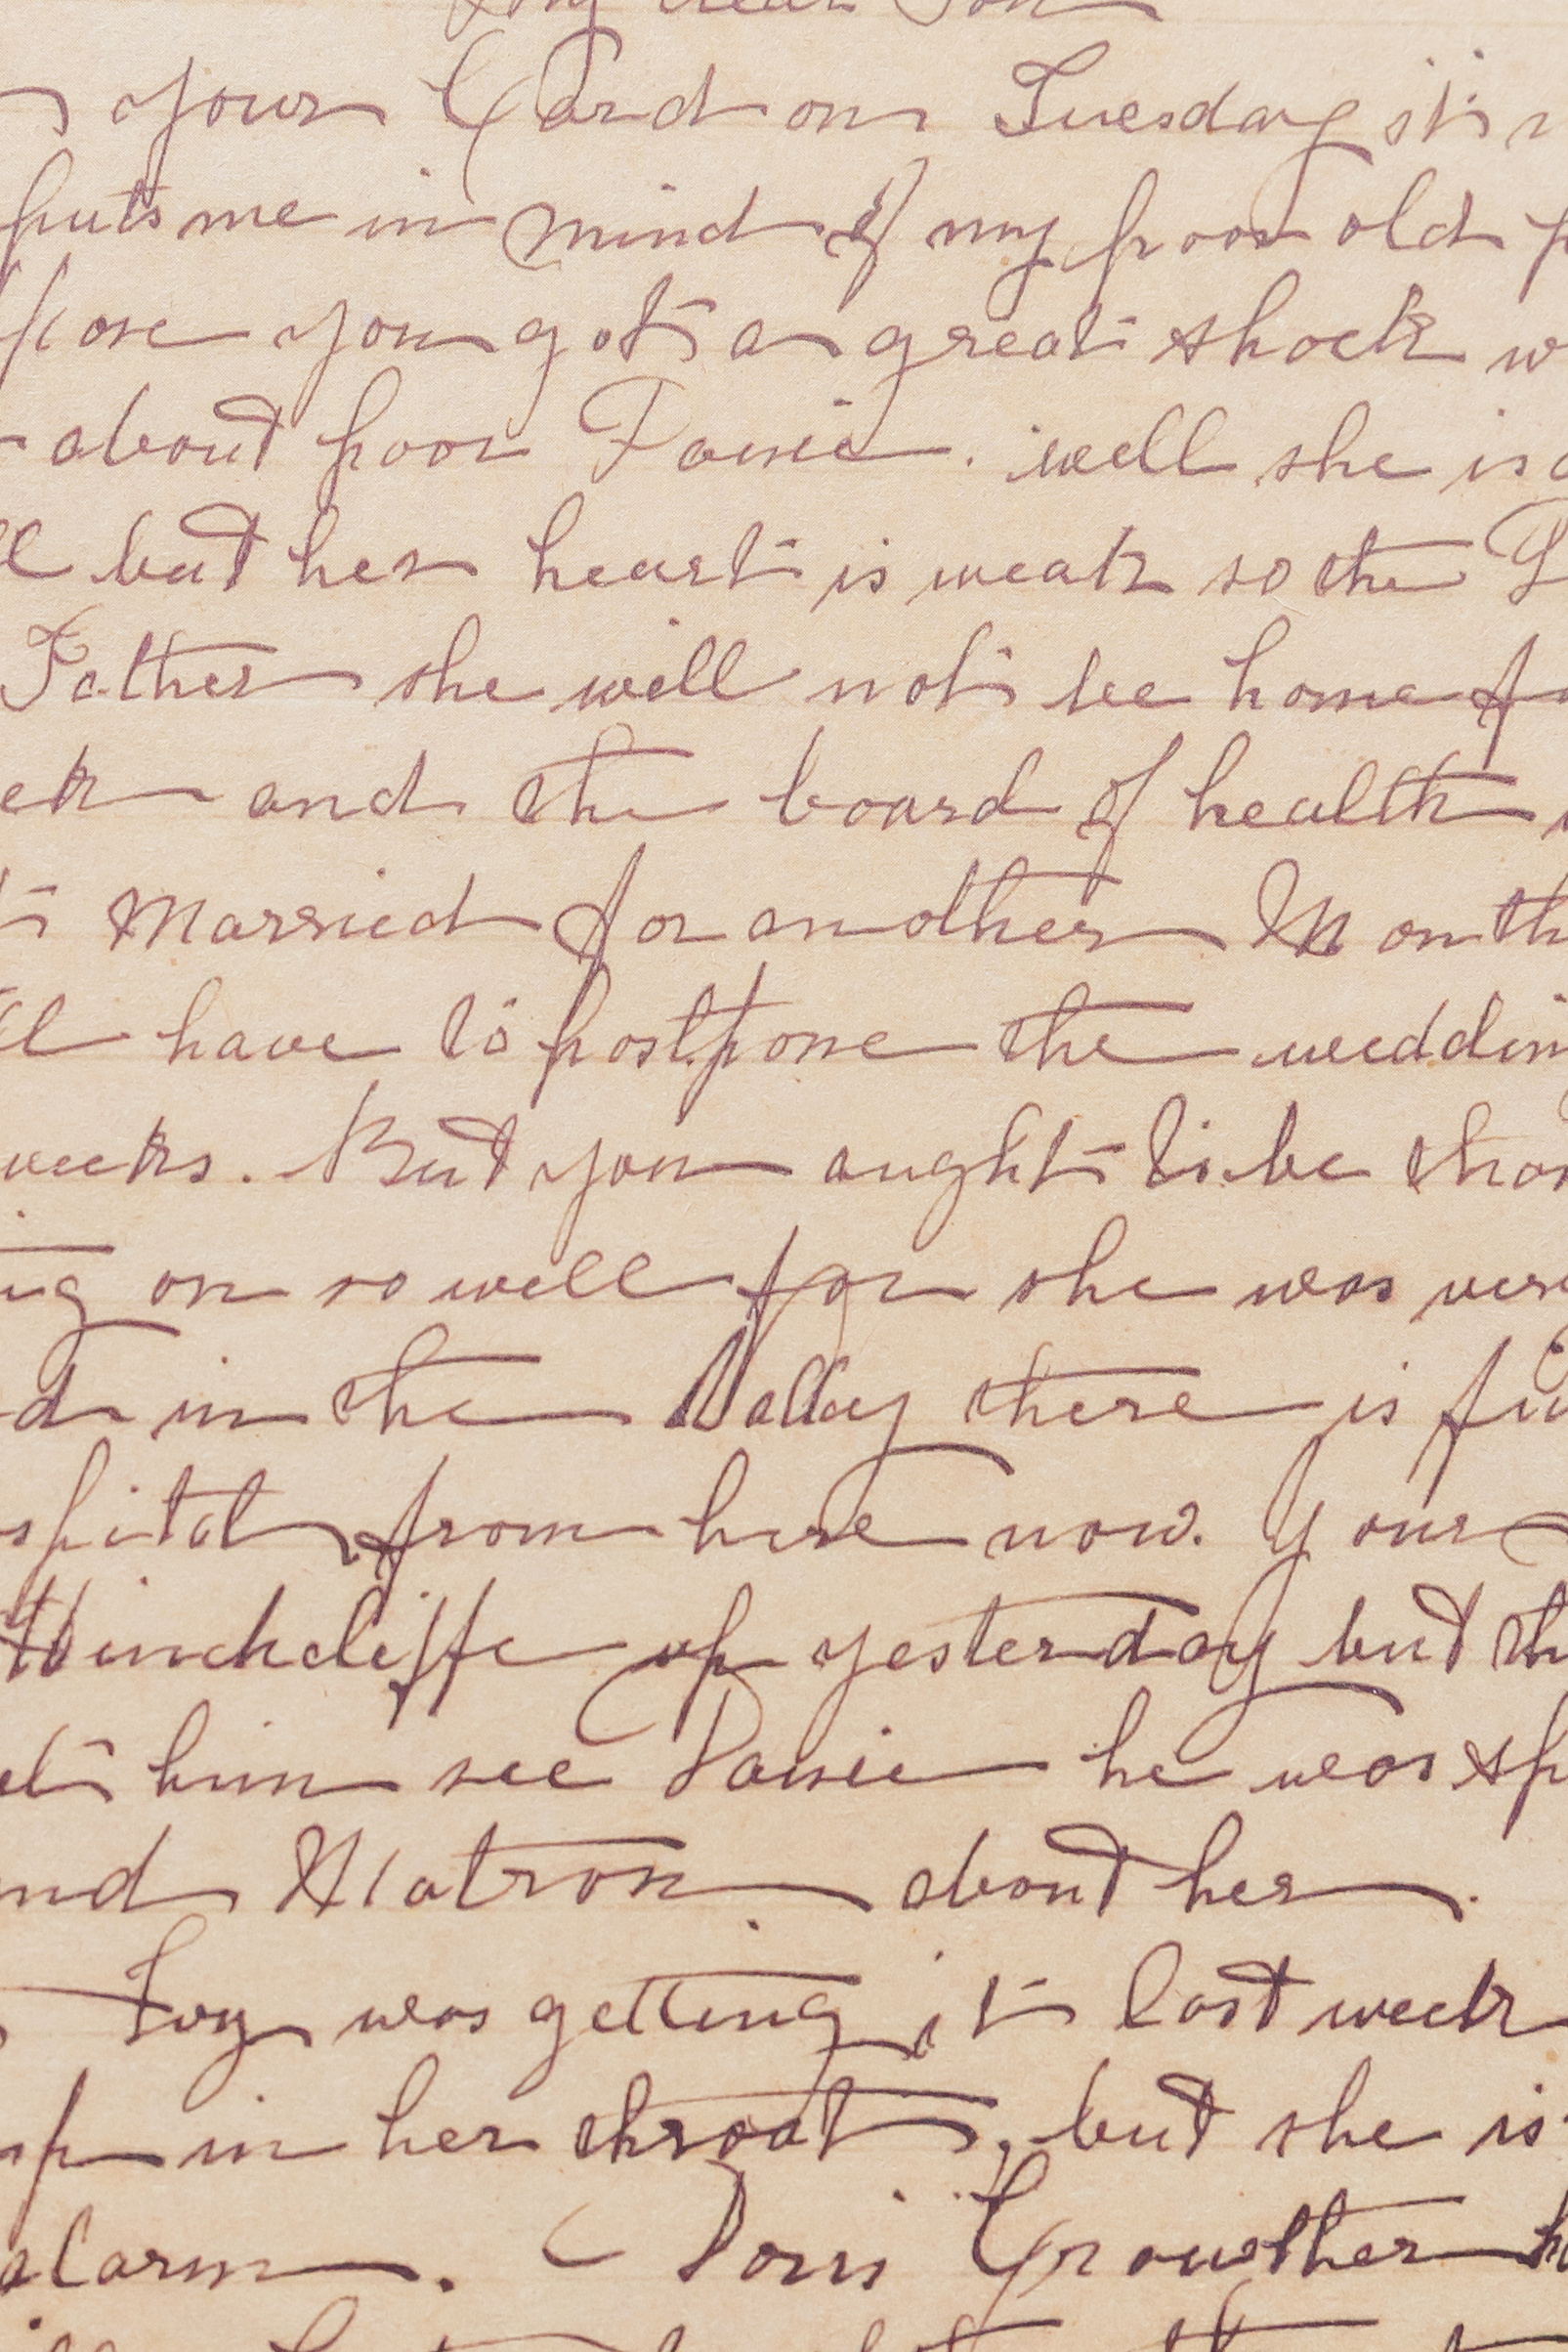 My dear Son
your Card on Tuesday it
puts me in mind of my poor old
pose you got a great shock w
about poor . well she is
ll but her heart is weak so the
Father she will not be home
ek and the board of health
t Married for another Month
ll have to postpone the weddin
weeks. But you aught to be than
ing on so well for she was very
d in the Valley there is
spital from here now. Your
Hinchcliffe up yesterday but th
et him see he was sp
and Matron about her.
was getting it last week
in her throat, but she is
alarm. Doris Crowther